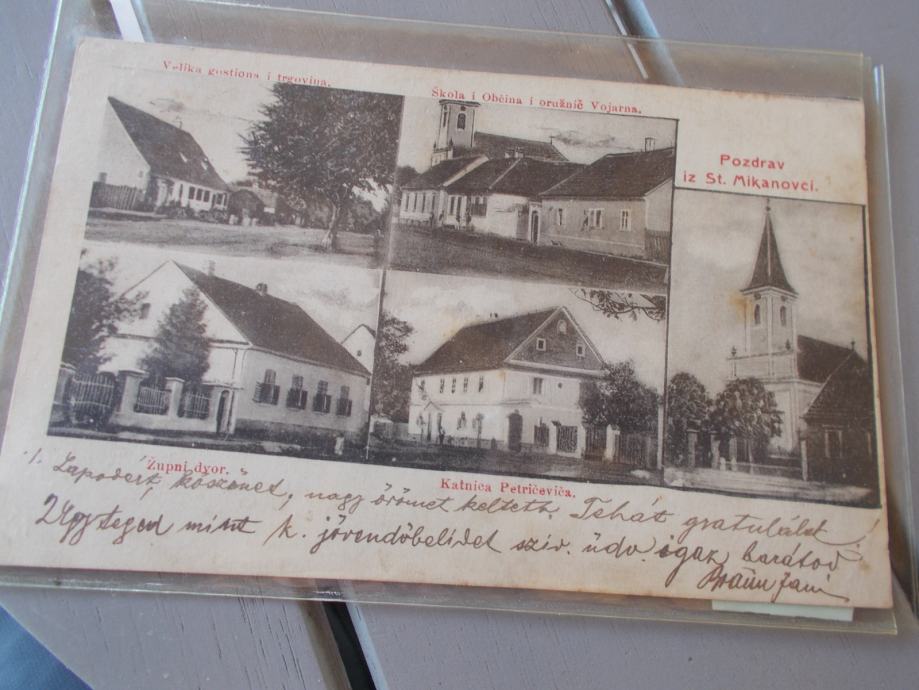 Velika gostiona i trgovina.
Škola i Občina i oružnič Vojarna.
Pozdrav
iz St. Mikanovci.
Župni dvor.
Katnica Petričeviča.
Lapodért köszönet, nagy örömet keltett. Tehát gratulálok!
úgy téged mint k. jövendőbelidet sziv. üdv. igaz barátod
Braun Jani